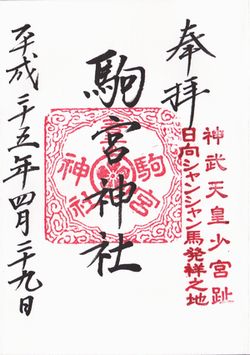 奉拝
神武天皇少宮趾
日向シャンシャン馬発祥之地
駒宮神社
駒宮
神社
平成二十五年四月二十九日